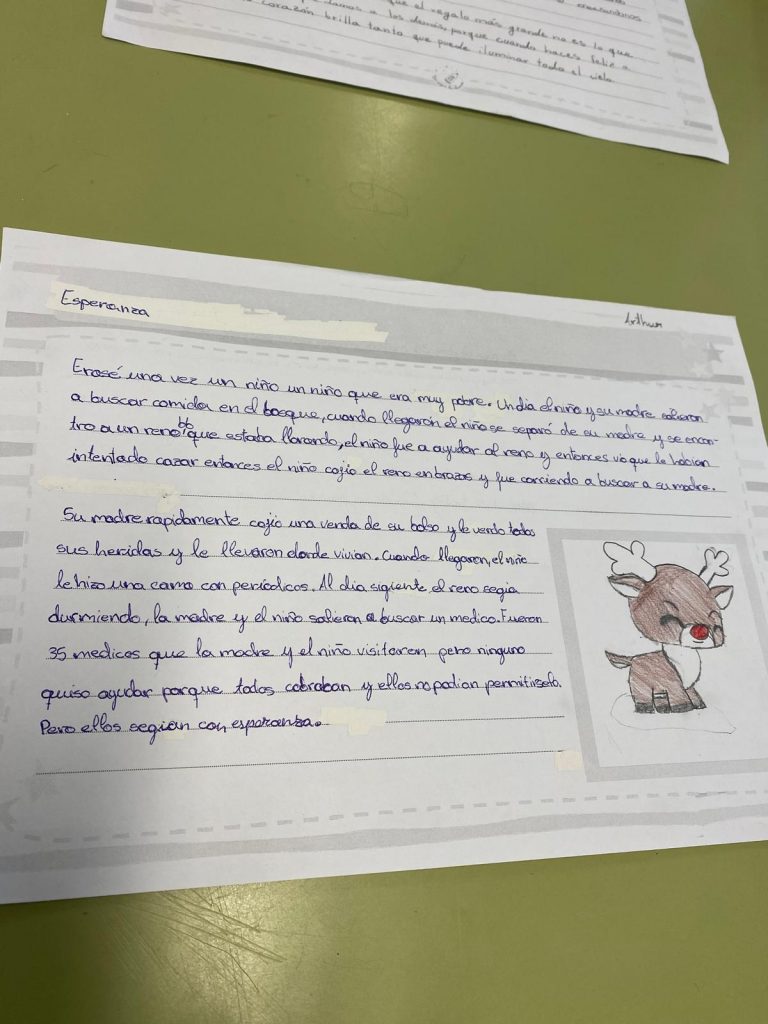 que el regalo más grande no es lo que
damos a los demás, porque cuando haces feliz a
corazón brilla tanto que puede iluminar todo el cielo
Esperanza
Arthur
Erasé una vez un niño un niño que era muy pobre. Un dia el niño y su madre salieron
a buscar comida en el bosque, cuando llegarón el niño se separó de su madre y se encon-
tro a un reno bb que estaba llorando, el niño fue a ayudar al reno y entonces vio que le habian
intentado cazar entonces el niño cojio el reno en brazos y fue corriendo a buscar a su madre.
Su madre rapidamente cojio una venda de su bolso y le vendo todas
sus heridas y le llevaron donde vivian. Cuando llegaron, el niñe
le hizo una cama con periódicos. Al dia sigiente, el reno segia
durmiendo, la madre y el niño salieron a buscar un medico. Fueron
35 medicos que la madre y el niño visitaron pero ninguno
quiso ayudar porque todos cobraban y ellos no podian permitirselo.
Pero ellos segian con esperanza.